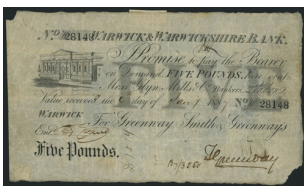 No 28148 WARWICK & WARWICKSHIRE BANK.
I Promise to pay the Bearer
on Demand FIVE POUNDS, here or at
Mills & Co Bankers London
Value received the 6 day of 18 No 28148
WARWICK For Greenway, Smith & Greenways
Entd
Five Pounds. Greenway